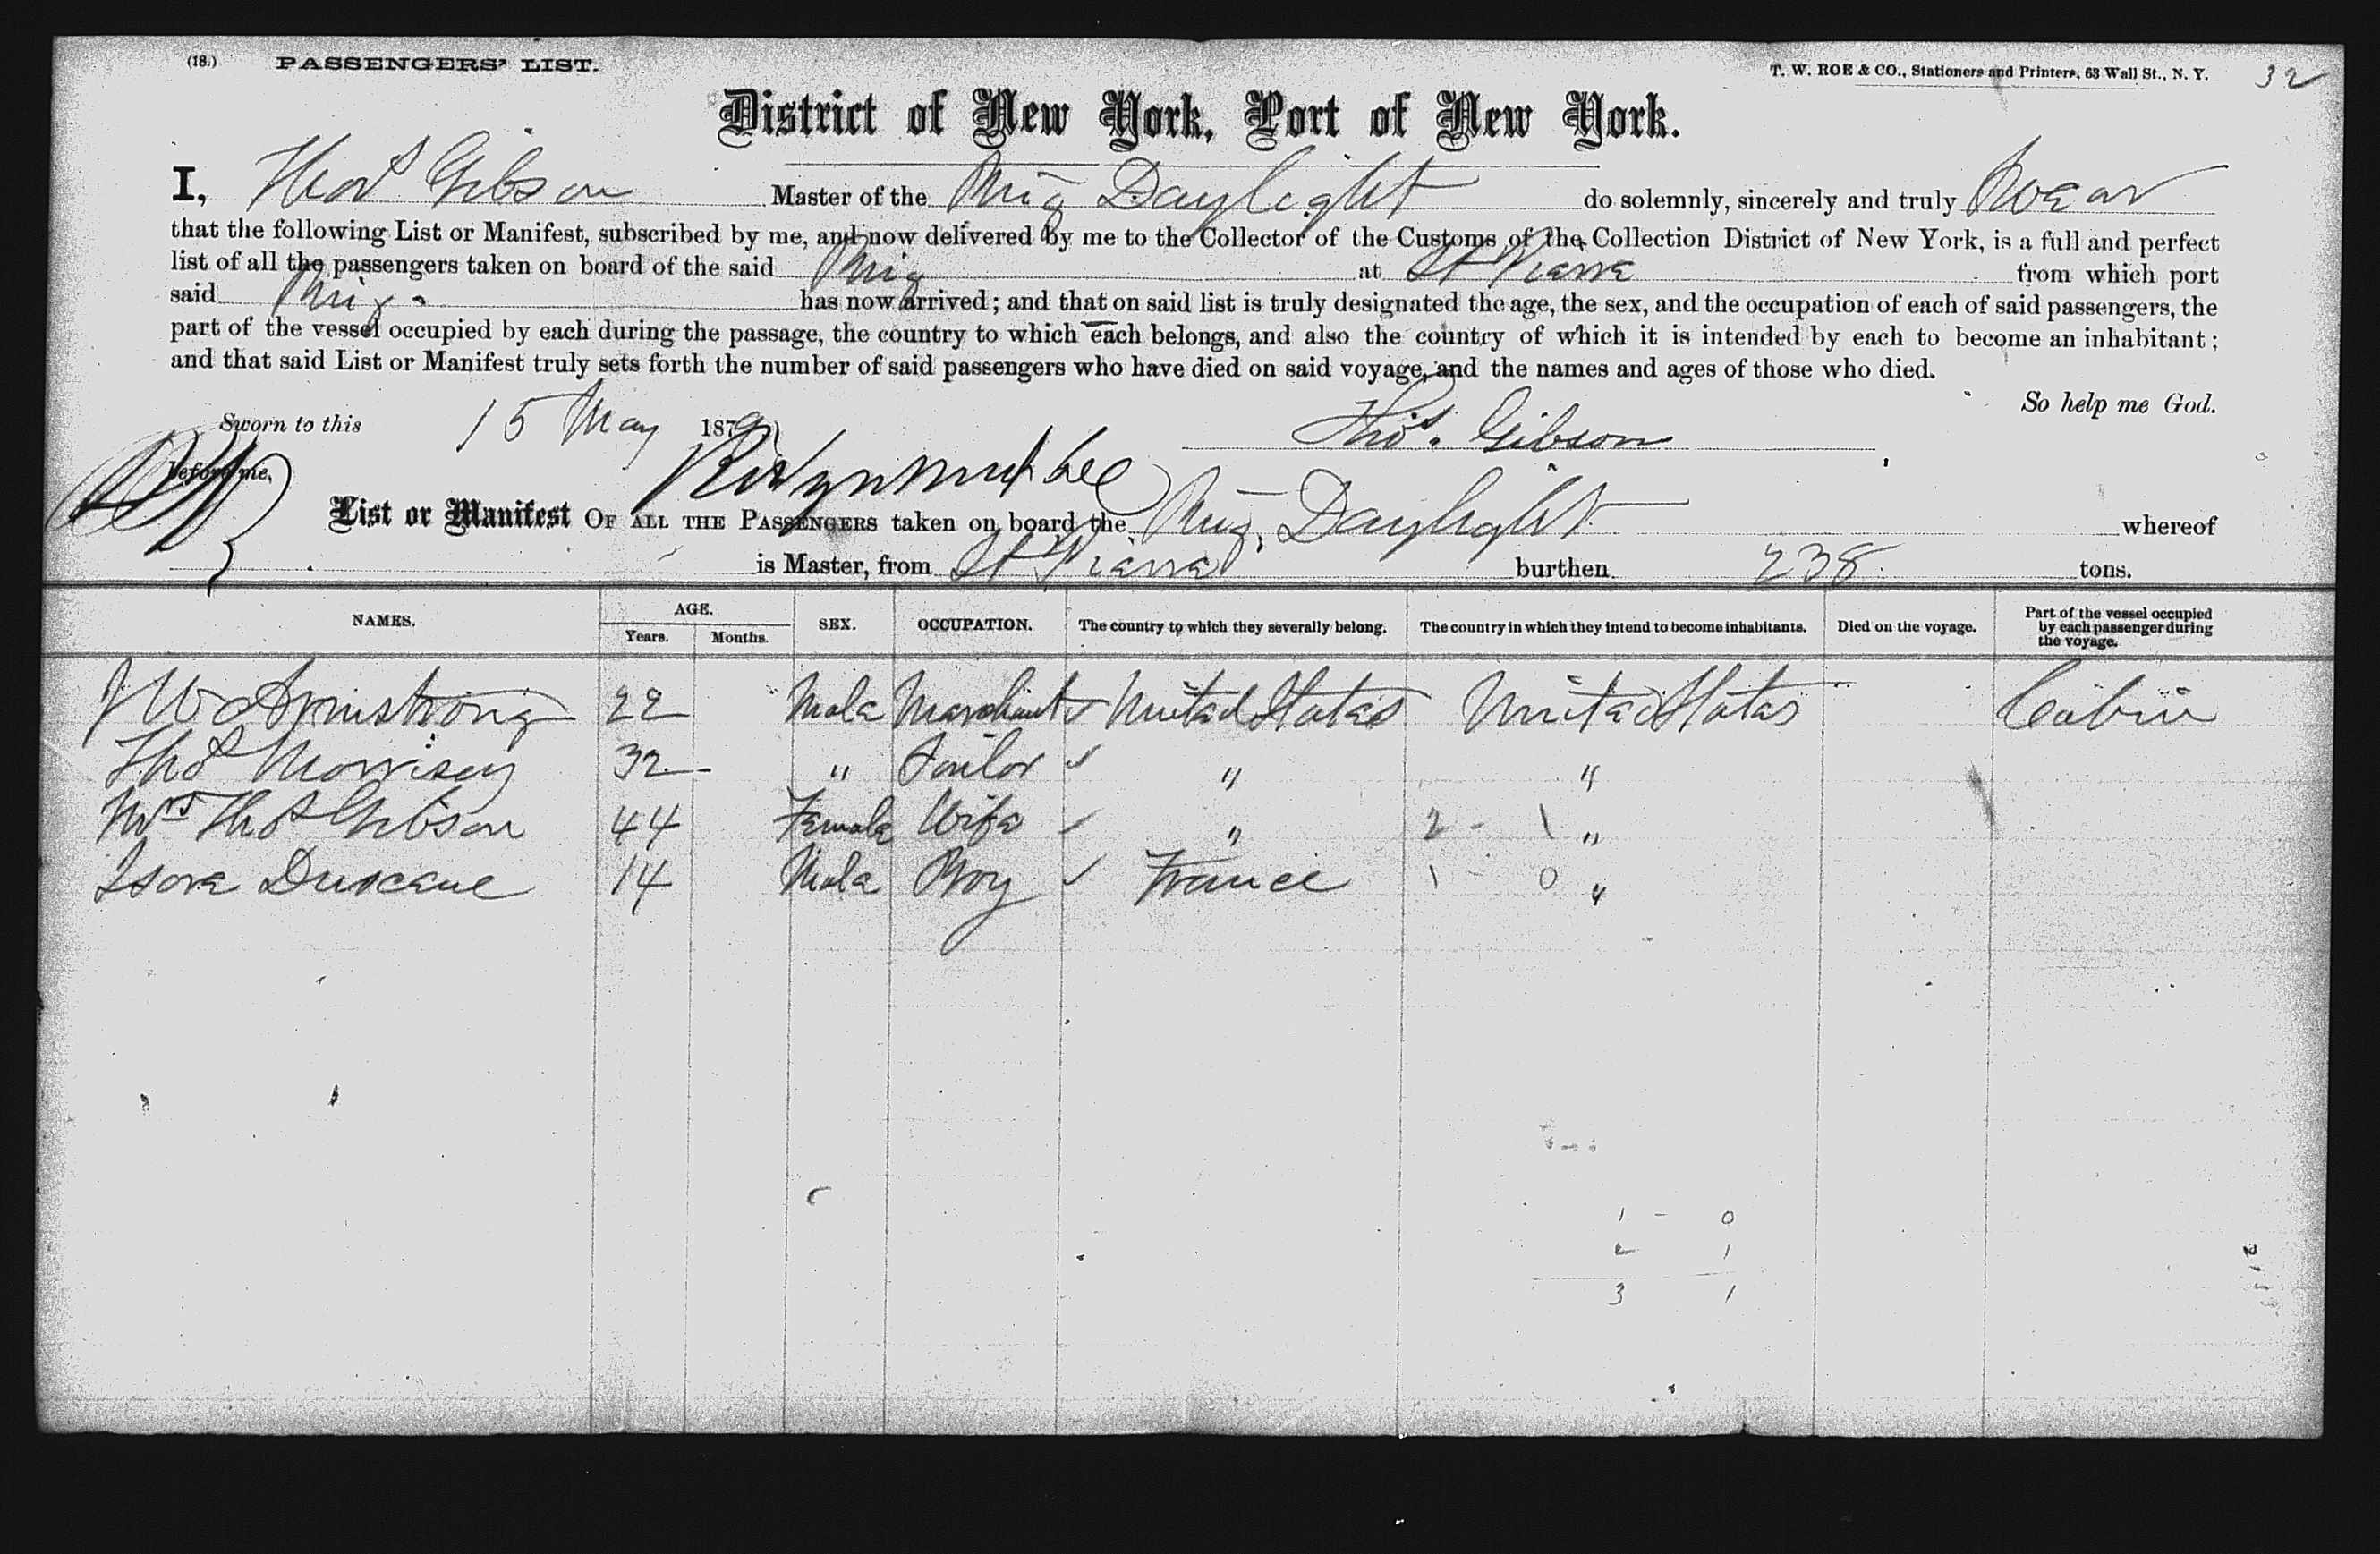 (18.) PASSENGERS' LIST. T. W. ROE & CO., Stationers and Printers, 63 Wall St., N. Y. 32
District of New York, Port of New York.
I, Thos Gibson Master of the Brig Daylight do solemnly, sincerely and truly Swear
that the following List or Manifest, subscribed by me, and now delivered by me to the Collector of the Customs of the Collection District of New York, is a full and perfect
list of all the passengers taken on board of the said Brig at St Pierre from which port
said Brig. has now arrived; and that on said list is truly designated the age, the sex, and the occupation of each of said passengers, the
part of the vessel occupied by each during the passage, the country to which each belongs, and also the country of which it is intended by each to become an inhabitant;
and that said List or Manifest truly sets forth the number of said passengers who have died on said voyage, and the names and ages of those who died.
So help me God.
Sworn to this 15 May 1879 Thos. Gibson
before me,
List or Manifest OF ALL THE PASSENGERS taken on board the Brig, Daylight whereof
is Master, from St Pierre burthen 238 tons.
NAMES. AGE. Years. Months. SEX. OCCUPATION. The country to which they severally belong. The country in which they intend to become inhabitants. Died on the voyage. Part of the vessel occupied by each passenger during the voyage.
J W Armstrong 22 Male Merchant United States United States Cabin
Thos Morrisey 32 " Sailor " "
Mrs Thos Gibson 44 Female Wife " 2 - 1 "
14 Male Boy France 1 - 0 "
1 - 0
2 1
3 1